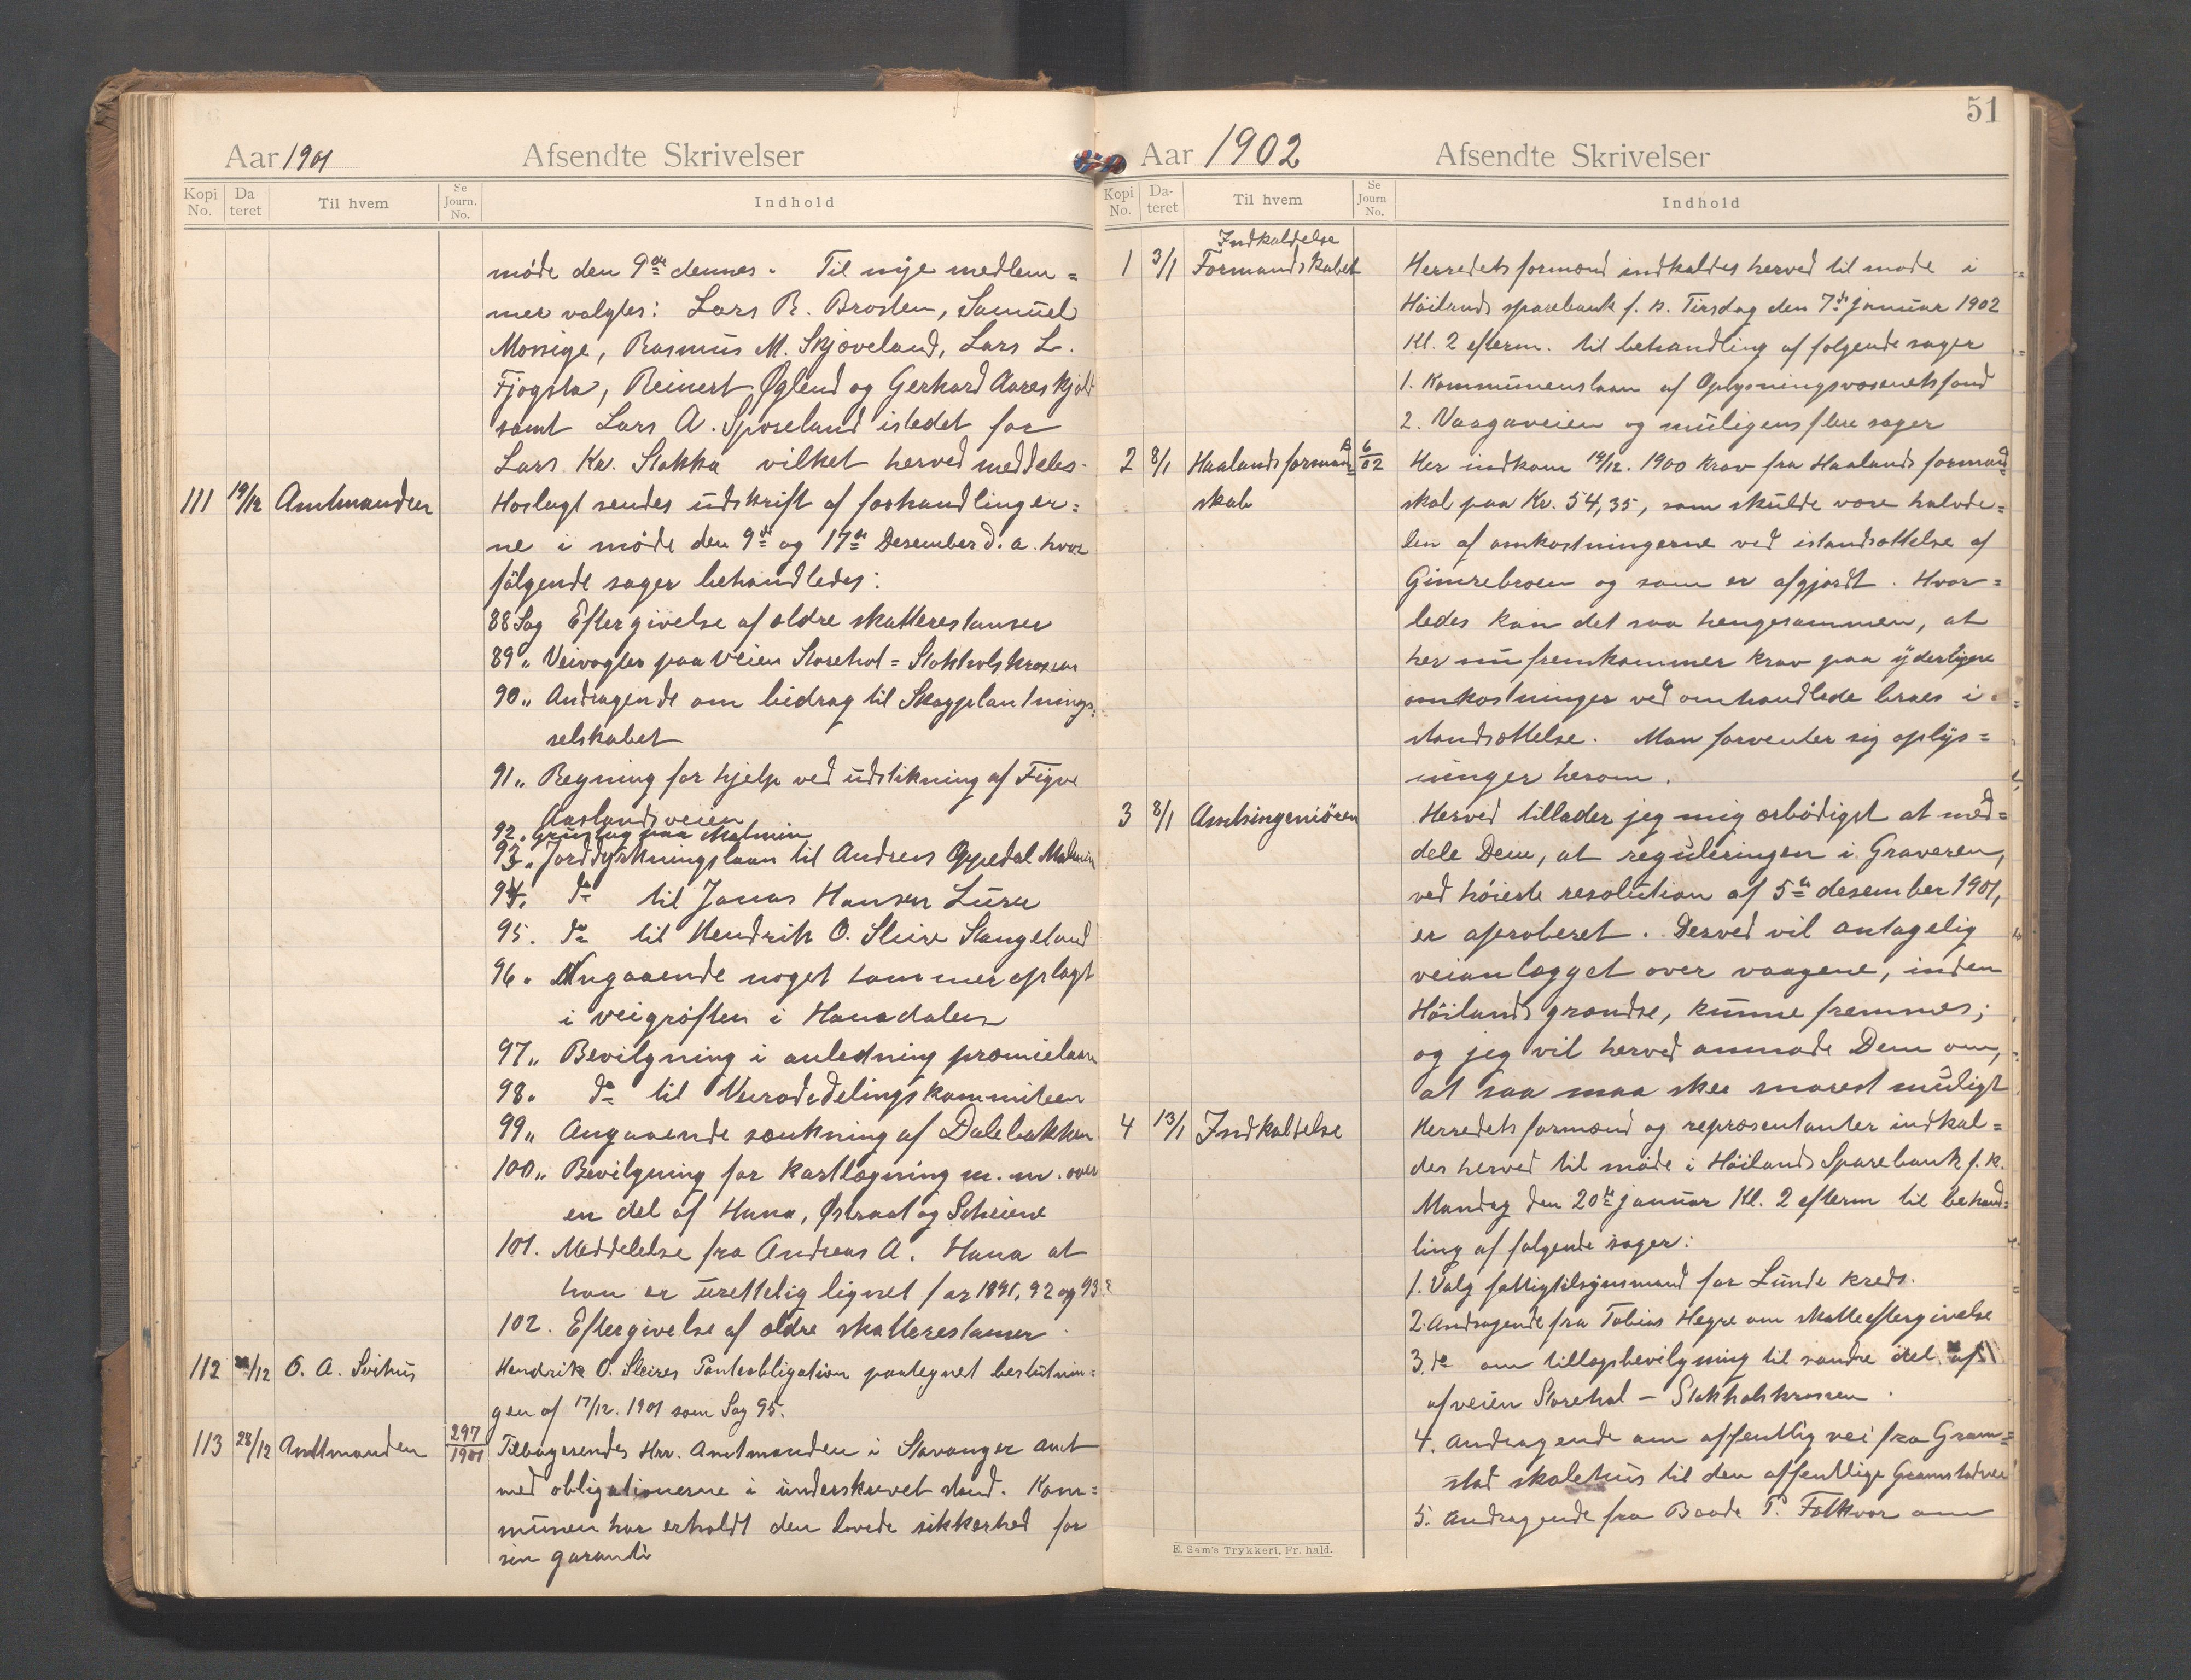 Aar 1901 Afsendte Skrivelser
Kopi No. Da teret Til hvem Se Journ. No. Indhold
møde den 9de dennes. Til nye medlem=
mer valgtes: Lars R. Brosten, Samuel
Monige, Rasmus M. Skjæveland, Lars L.
Fjogsta, Reinert Øglend og Gerhard Aareskjold
samt Lars A. Sporeland istedet for
Lars Kr. Stokka vilket herved meddeles.
111 19/12 Amtmanden Hoslagt sendes udskrift af forhandlinger=
ne i møde den 9de og 17de Desember d.a. hvor
følgende sager behandledes:
88 Sag Eftergivelse af ældre skatterestanser
89 " Veivogter paa veien Storehol = Stokholskrossen
90 " Andragende om bidrag til Skogplantnings=
selskabet
91 " Regning for hjelp ved udstikning af Figve
Aaslandsveien
92. Grustag paa Malmin
93 " Jorddyrkningslaan til Andreas Oppedal Malmin
94. do til Jonas Hansen Lura
95. do til Hendrik O. Sleire Stangeland
96. Angaaende noget tømmer oplagt
i veigrøften i Hanadalen
97 " Bevilgning i anledning præmielaan
98. do til Veirodedelingskommiteen
99 " Angaaende sænkning af Dalebakken
100 " Bevilgning for kartlægning m.m. over
en del af Hana, Østraat og Scheiene
101. Meddelelse fra Andreas A. Hana at
han er urettelig lignet for 1891, 92 og 93
102. Eftergivelse af ældre skatterestanser
112 /12 O. A. Svihus Hendrik O. Sleires Panteobligation paategnet beslutnin=
gen af 17/12. 1901 som Sag 95.
113 28/12 Amtmanden 297/1901 Tilbagesendes Hrr. Amtmanden i Stavanger amt
med obligationerne i underskrevet stand. Kom=
munen har erholdt den lovede sikkerhed for
sin garanti
51
Aar 1902 Afsendte Skrivelser
Kopi No. Da- teret Til hvem Se Journ No. Indhold
Indkaldelse
1 3/1 Formandskabet Herredets formænd indkaldes herved til møde i
Høilands sparebank f. k. Tirsdag den 7de januar 1902
Kl. 2 efterm. til behandling af følgende sager
1. Kommunenslaan af Oplysningsvæsenets fond
2. Vaagaveien og muligens flere sager
2 8/1 Haalands formand= 6/02 Her indkom 19/12. 1900 Krav fra Haalands formand=
skab skab paa Kr. 54,35, som skulde være halvde=
len af omkostningerne ved istandsættelse af
Gimrebroen og som er afgjordt. Hvor=
ledes kan det saa hengesammen, at
her nu fremkommer krav paa yderligere
omkostninger ved omhandlede broes i=
standsættelse. Man forventer sig oplys=
ninger herom.
3 8/1 Amtsingeniøren Herved tillader jeg mig ærbødigst at med=
dele Dem, at reguleringen i Graveren,
ved høieste resolution af 5te desember 1901,
er aproberet. Derved vil antagelig
veianlægget over vaagene, inden
Høilands grændse, kunne fremmes;
og jeg vil herved anmode Dem om,
at saa maa skee snarest muligt
4 13/1 Indkaldelse Herredets formænd og repræsentanter indkal=
des herved til møde i Høilands Sparebank f. k.
Mandag den 20de januar Kl. 2 efterm til behand=
ling af følgende sager:
1. Valg fattigtilsynsmand for Lunde kreds.
2. Andragende fra Tobias Hegre om skatteeftergivelse
3. do om tillægsbevilgning til søndre del af
af veien Storehol – Stokholskrossen.
4. Andragende om offentlig vei fra Gram=
stad skolehus til den offentlige Gramstadvei
5. Andragende fra Baade P. Folkvor om
E. Sem's Trykkeri, Fr. hald.